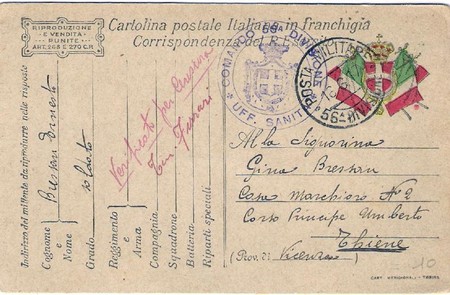 RIPRODUZIONE
E VENDITA
PUNITE
ART. 265 E 270 C.P.
Cartolina postale Italiana in franchigia
Corrispondenza del R. E.
COMANDO 56A DIVISIONE
UFF. SANITÀ
POSTA MILITARE
56A DIVISIONE
Indirizzo del mittente da riprodurre nelle risposte
Cognome e Nome
Bressan Ernesto
Grado
soldato
Reggimento e Arma
Compagnia
Squadrone
Batteria
Riparti speciali
Verificato per Censura
Ten
Alla Signorina
Gina Bressan
Casa Marchioro No 2
Corso Principe Umberto
Thiene
(Prov. di Vicenza)
10